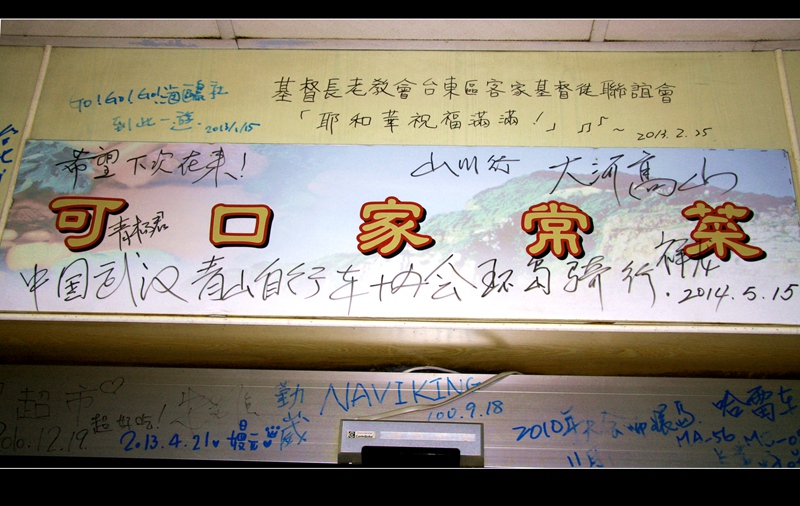 GO! GO! GO! 海龘社
到此一遊 2013/1/15
基督長老教會台東區客家基督徒聯誼會
「耶和華祝福滿滿!」♫♪~ 2013.2.25
希望下次在來!
山川行 大河高山
可口家常菜
中国武汉青山自行车协会环岛骑行
. 2014.5.15
超市♡
超好吃!
2010.12.19
2013.4.21
勤崴
NAVIKING
100.9.18
2010年
哈雷车
11月